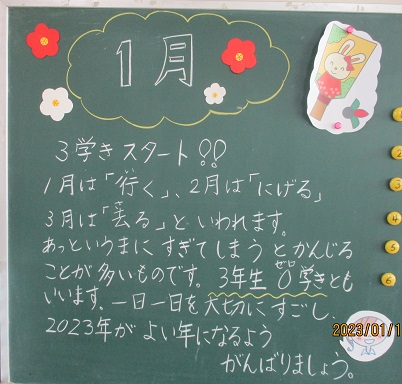 1月
3学き スタート!!
1月は「行く」、2月は「にげる」
3月は「去る」と いわれます。
あっというまに すぎてしまう と かんじる
ことが 多いものです。 3年生 0学きとも
ゼロ
いいます。 一日一日を 大切に すごし、
2023年が よい年になるよう
がんばりましょう。
2023/01/1
2
3
4
5
6